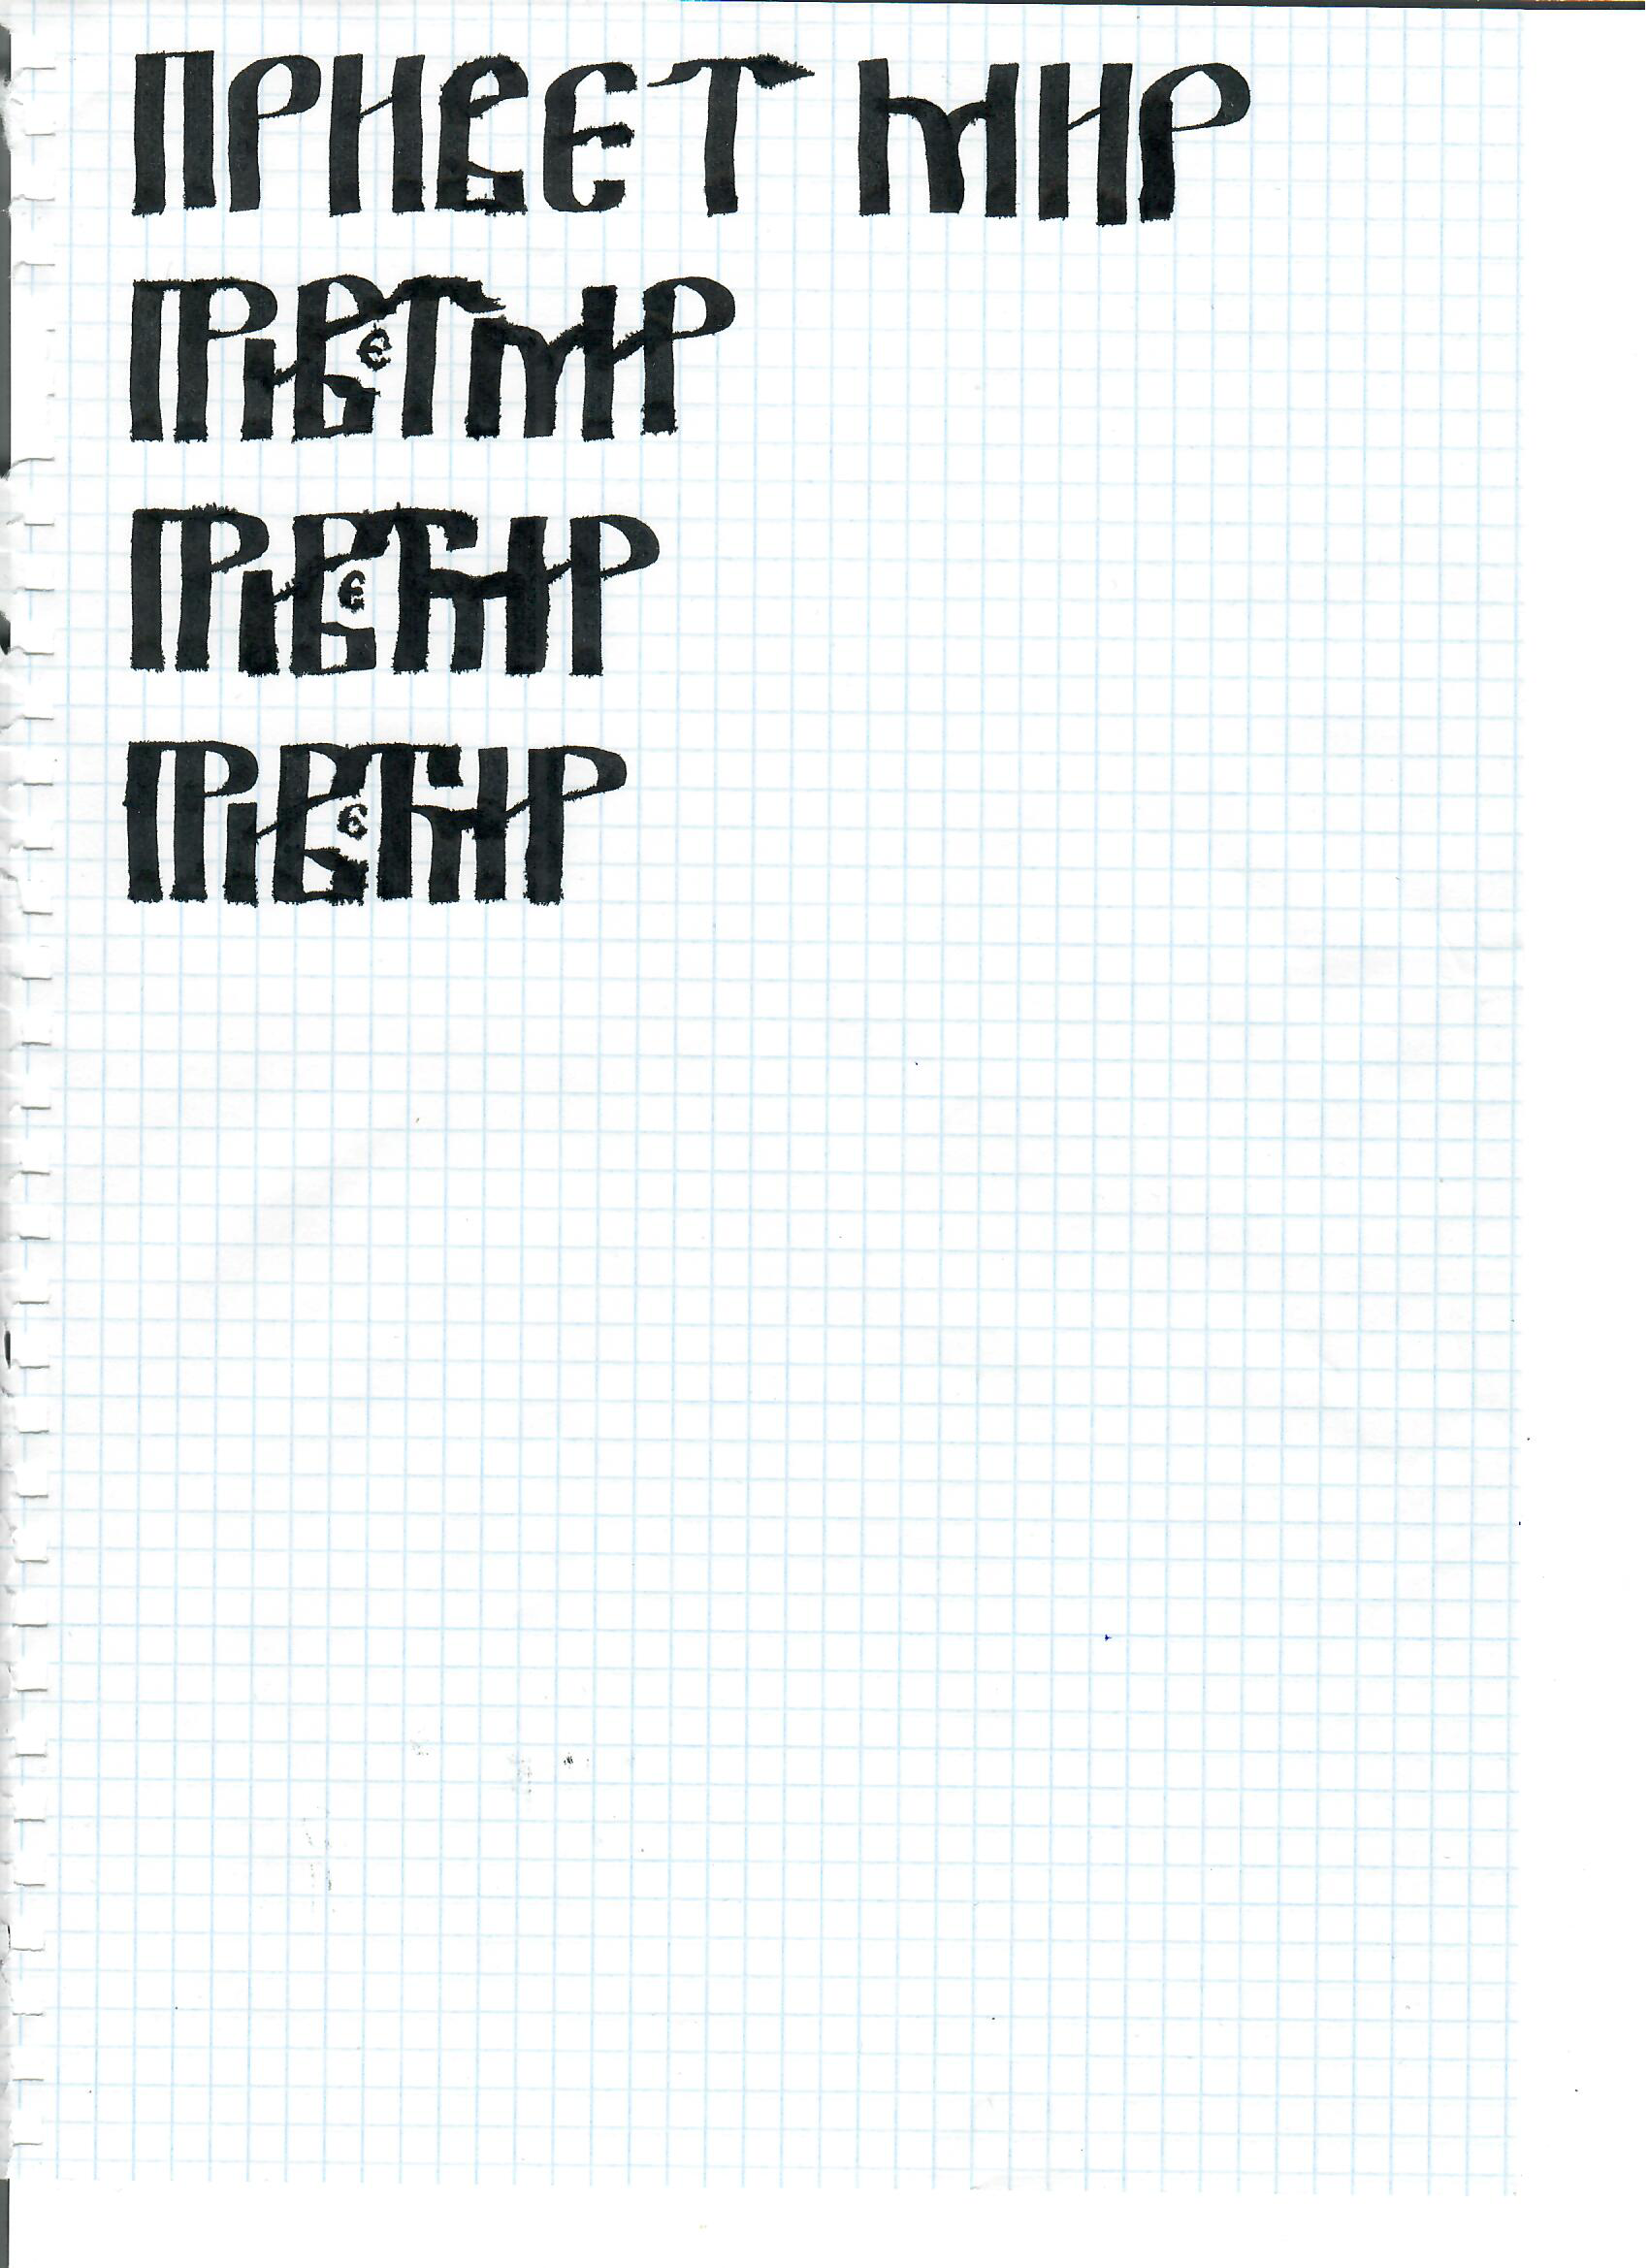 ПРИВЕТ МИР
ПРИВЕТ МИР
ПРИВЕТ МИР
ПРИВЕТ МИР